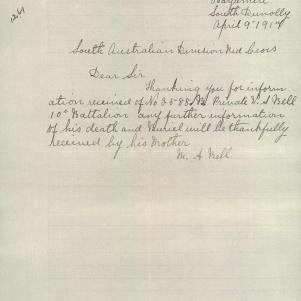 1264
South Dunolly
April 9th 1917
South Australian Division Red Cross
Dear Sir
Thanking you for inform
ation received of No 3588 Private V. S Nell
10th Battalion any further information
of his death and Buriel will be thankfully
received by his Mother
M. A Nell